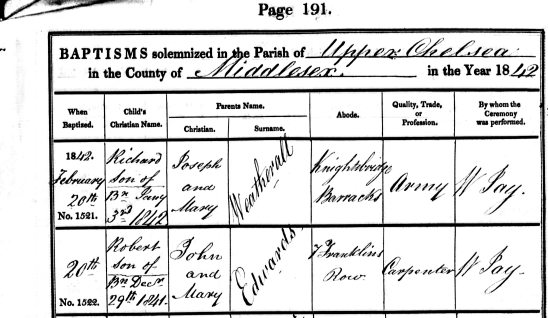 Page 191.
BAPTISMS solemnized in the Parish of Upper Chelsea
in the County of Middlesex. in the Year 1842
When Baptized. Child's Christian Name. Parents Name. Abode. Quality, Trade, or Profession. By whom the Ceremony was performed.
Christian. Surname.
1842.
February
20th
No. 1521.
Richard
son of
Bn Jany
3rd 1842
Joseph
and
Mary
Weatherall
Knightsbridge
Barracks
Army
W Jay.
20th
No. 1522.
Robert
son of
Bn Decr
29th 1841.
John
and
Mary
Edwards
7 Franklins
Row
Carpenter
W Jay.